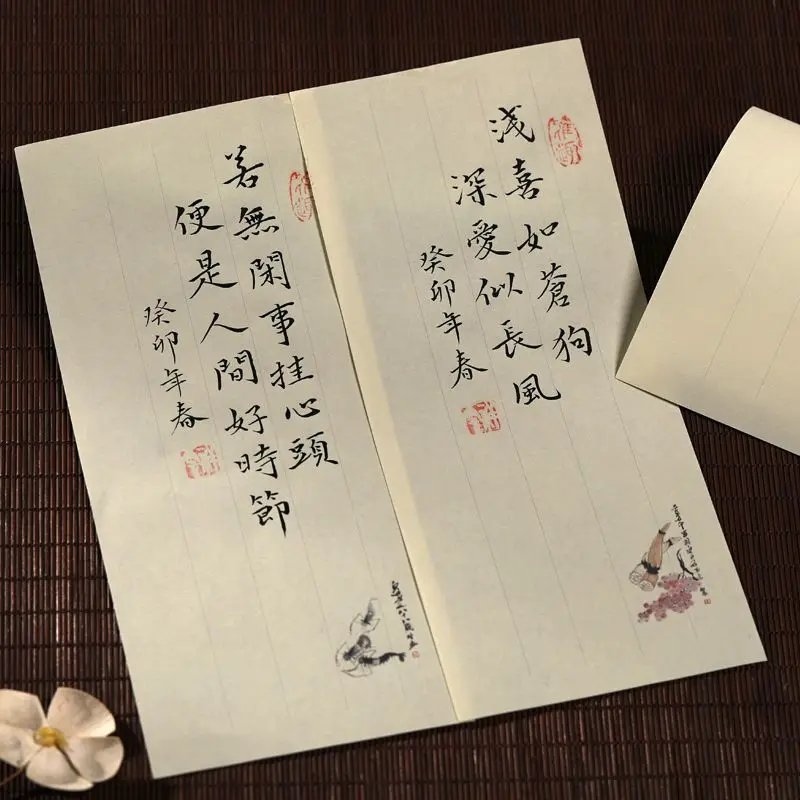 淺喜如蒼狗
深愛似長風
癸卯年春
若無閑事挂心頭
便是人間好時節
癸卯年春